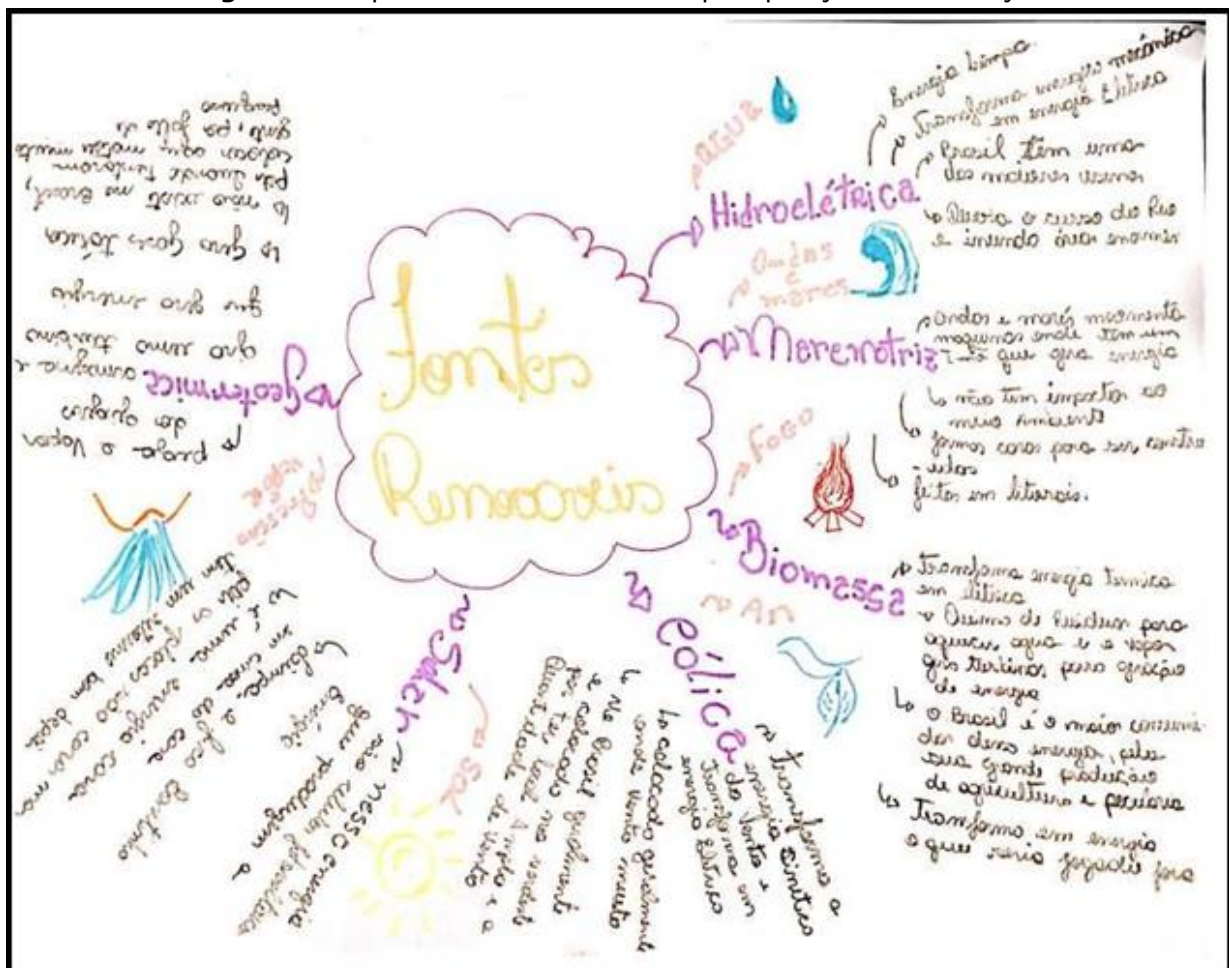 Fontes
Renováveis
Hidroelétrica
ÁGUA
Energia limpa
Transforma energia mecânica
em energia Elétrica
Brasil têm uma
das maiores usinas
Desvia o curso do Rio
e inunda áreas enormes
Maremotriz
Ondas
e
marés
Ondas e marés movimenta
maquinas onde têm um
que gera energia
não tem impactos ao
meio ambiente
caras para ser constru
-idas
feitas em litorais.
Biomassa
Fogo
Transforma energia termica
em elétrica
Queima de Resíduos para
aquecer agua e o vapor
gira turbinas para geração
de energia
O Brasil é o maior consumi
dor dessa energia, pela
sua grande produção
de agricultura e pecúaria
Transforma em energia
o que seria jogado fora
Eólica
Ar
Transforma a
energia cinética
do Vento e
Transforma em
energia Elétrica
colocado geralmente
onde venta muito
No Brasil geralmente
é colocado no nordeste
por ter local Amplo e a
Quantidade de Vento
Solar
SOL
nessa energia
são células fotovoltaicas
que produzem a
Energia
Limpa e fica
em cima da casa
é uma energia cara
pois as placas são caras mas
tem um bom depois
Geotermica
Pressão
vapor
pega o Vapor
da
armazena e
gira uma turbina
que gira energia
gera gases tóxicos
não existe no Brasil,
pois quando tentaram
colocar aqui matou muita
gente, por falta de